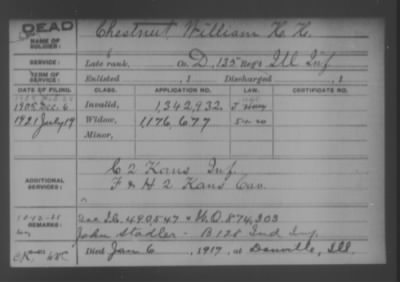 DEAD
NAME OF SOLDIER: Chestnut William H. H.
SERVICE: Late rank, Co. D, 135 Reg't Ill Inf
TERM OF SERVICE: Enlisted , 1 Discharged , 1
DATE OF FILING. CLASS. APPLICATION NO. LAW. CERTIFICATE NO.
1905 Dec. 6 Invalid, 1,342,932
1921 July 19 Widow, 1,176,677
Minor,
ADDITIONAL SERVICES: C 2 Kans Inf.
F & H 2 Kans Cav.
REMARKS: 490,547 W.O. 874,303
John Stadler - B 128 Ind Inf.
Died Jan 6, 1917, at Danville, Ill.